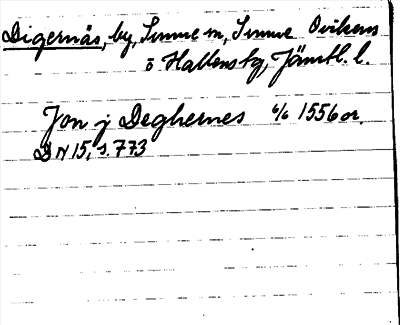 Digernäs, by, Sunne sn, Sunne Ovikens
o Hallens tg, Jämtl. l.
Jon j Deghernes 6/6 1556 or.
DN 15, s. 773